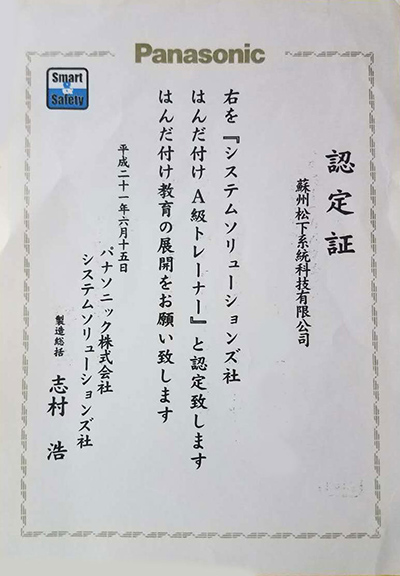 Panasonic
Smart
&
Safety
認定証
蘇州松下系統科技有限公司
右を『システムソリューションズ社
はんだ付け A級トレーナー』と認定致します
はんだ付け教育の展開をお願い致します
平成二十一年六月十五日
パナソニック株式会社
システムソリューションズ社
製造総括 志村 浩